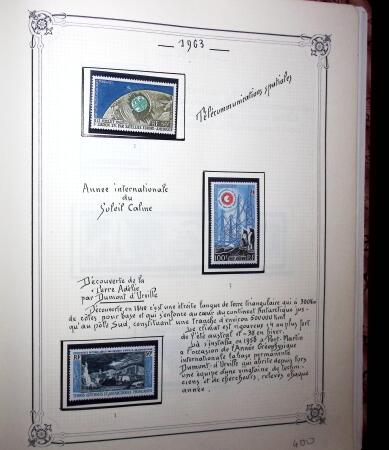 — 1963 —
Télécommunications spatiales
Année internationale
du
Soleil Calme
100f
Découverte de la
Terre Adélie
par Dumont d'Urville
Découverte en 1840 c'est une étroite langue de terre triangulaire qui a 300 km
de côtes pour base et qui s'enfonce au cœur du continent Antarctique jus-
qu'au pôle Sud, constituant une tranche d'environ 500000 km²
Le climat est rigoureux au plus fort
de l'été austral et -38 en hiver.
s'installa en 1956 à Port-Martin
à l'occasion de l'Année Géophysique
internationale la base permanente
Dumont d'Urville qui abrite depuis lors
une équipe d'une vingtaine de techni-
ciens et de chercheurs, relevés chaque
année.
RF
50f
TERRES AUSTRALES ET ANTARCTIQUES FRANÇAISES
400